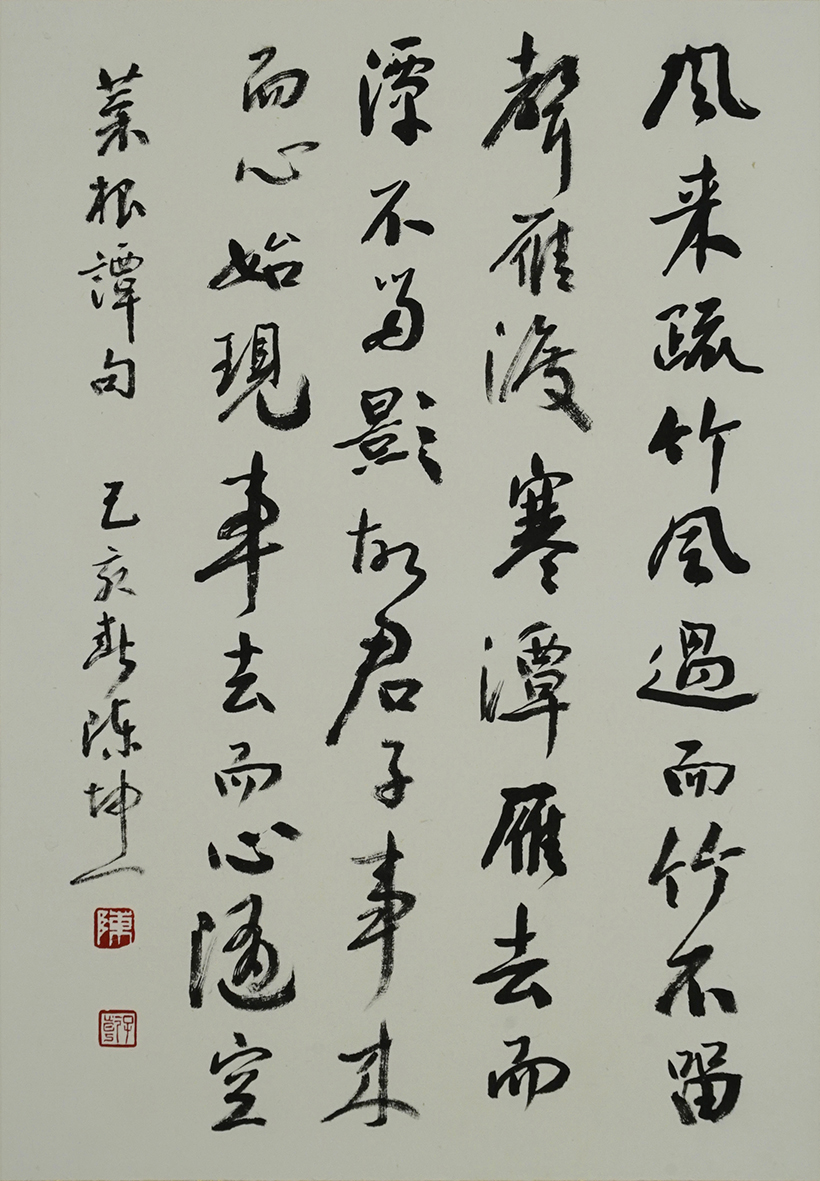 風来疏竹風過而竹不留
聲雁渡寒潭雁去而
潭不留影故君子事来
而心始現事去而心随空
菜根譚句 己亥春陳坤一
陳